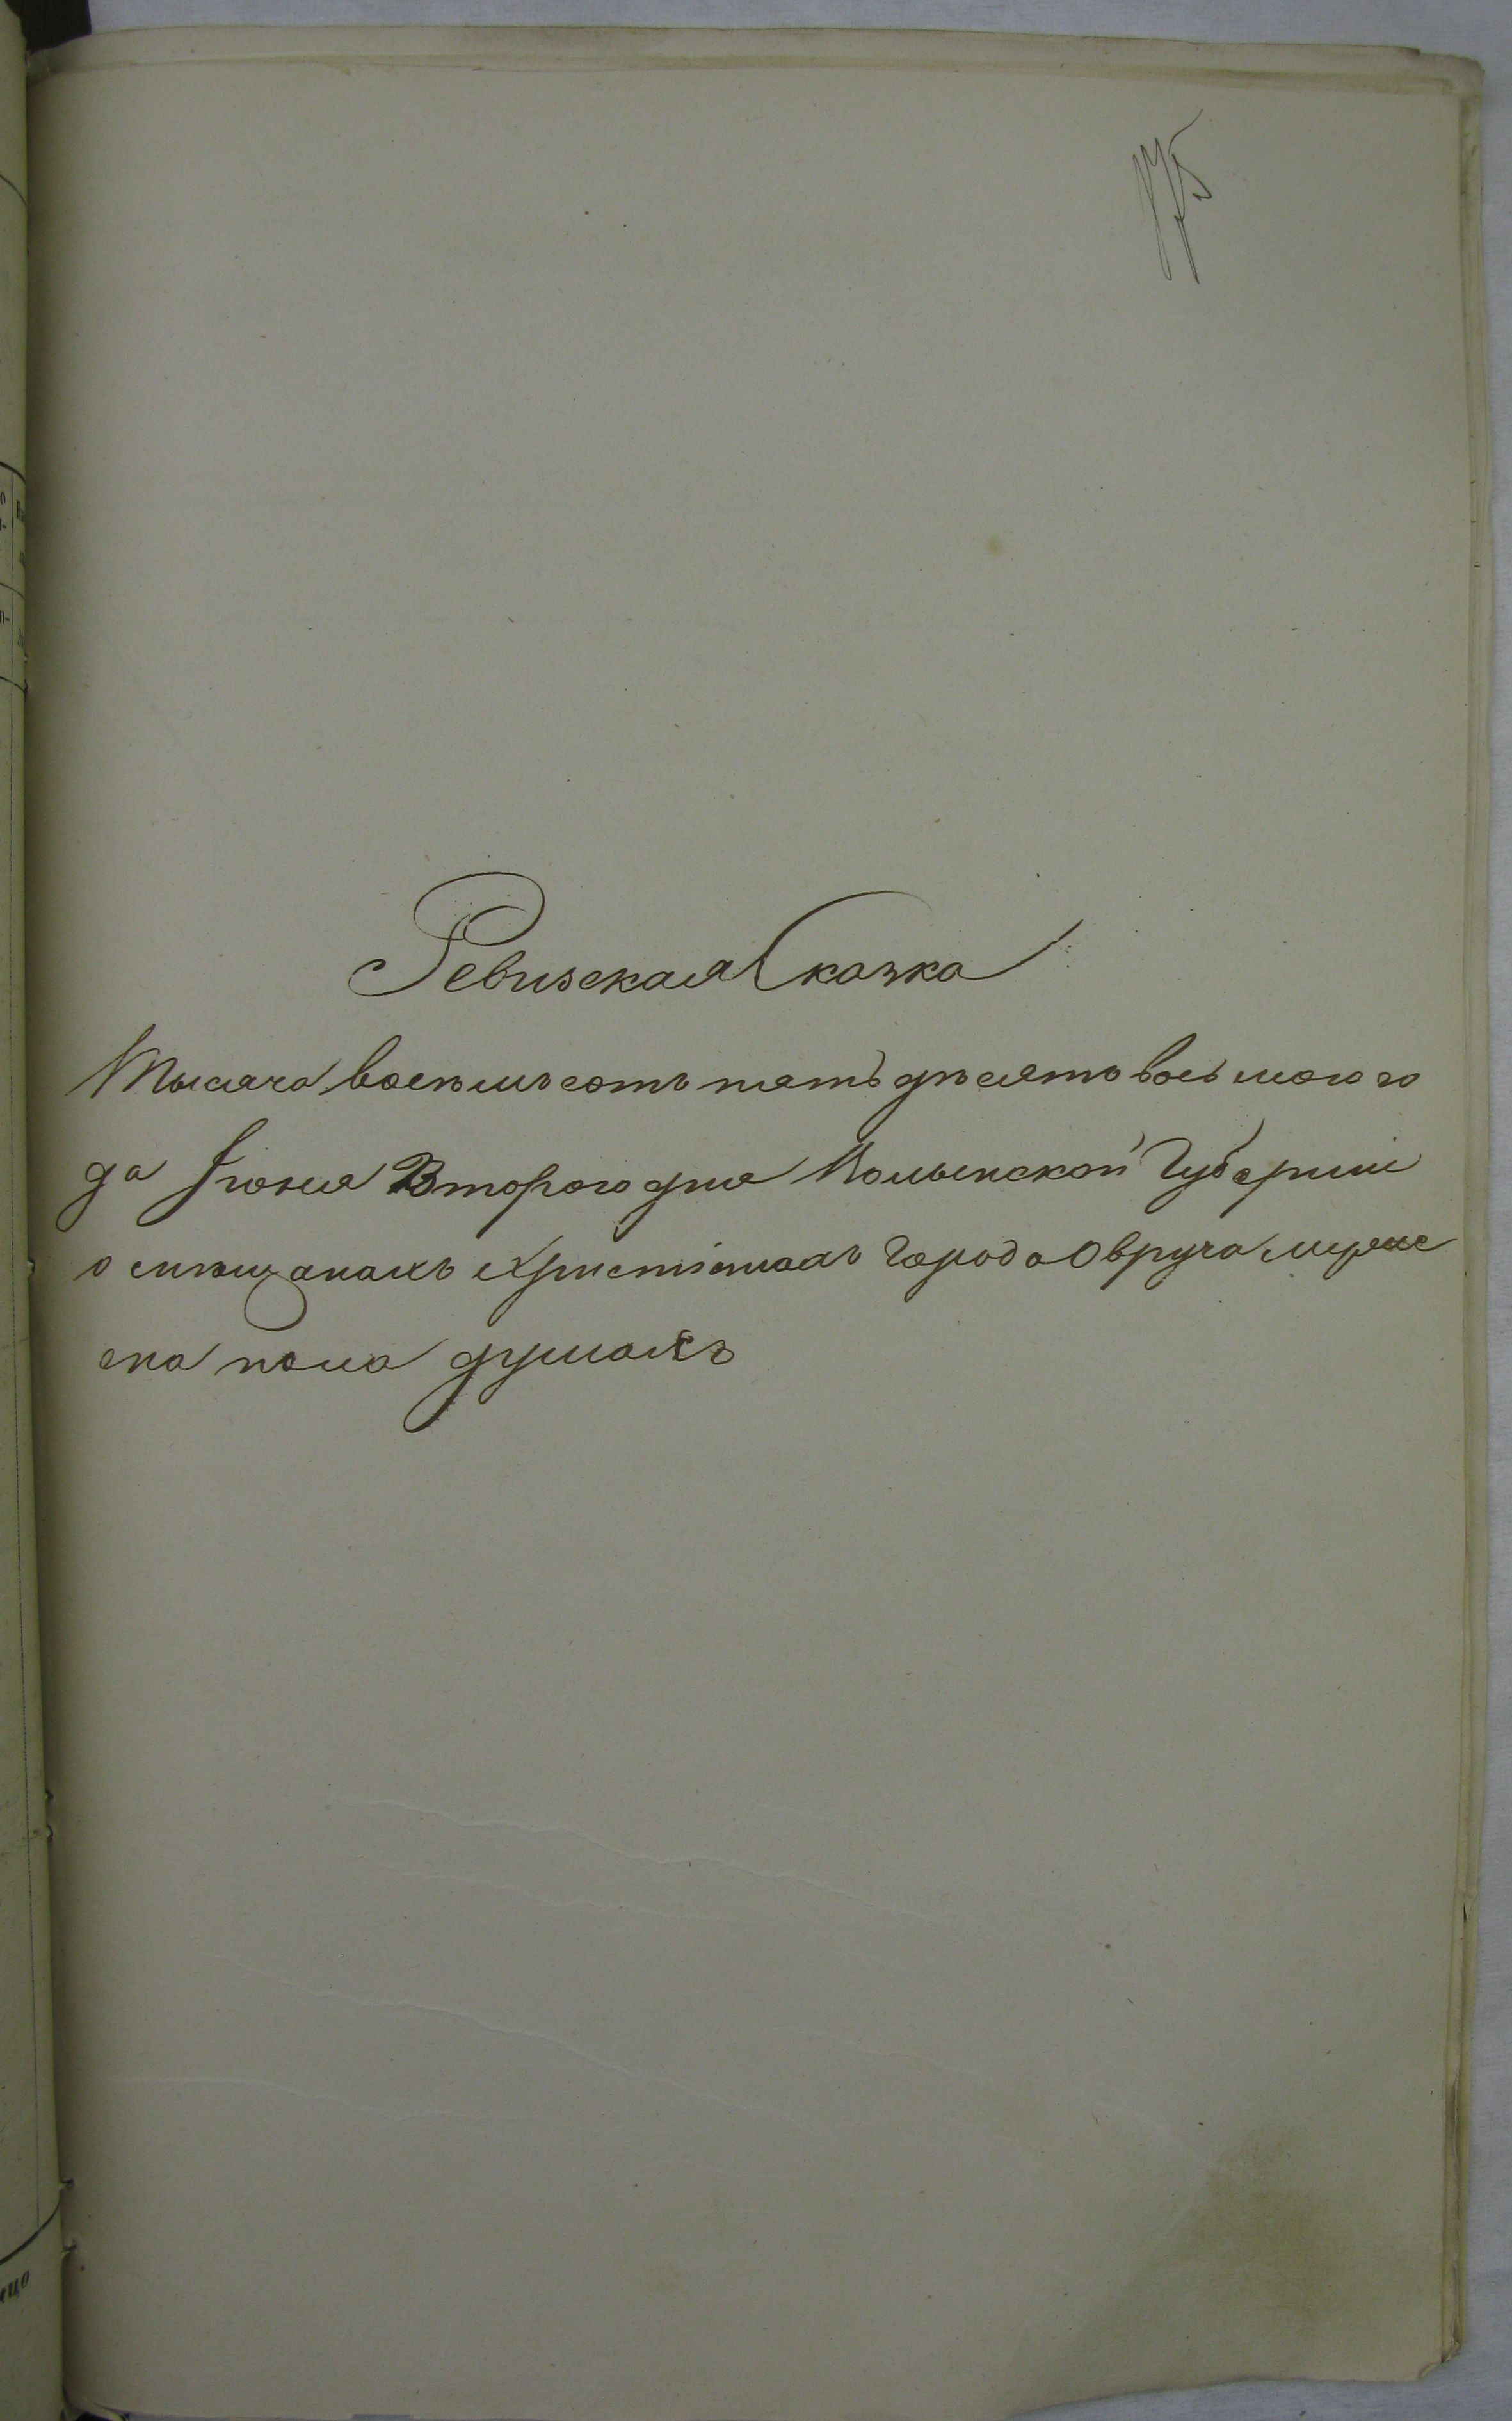 Ревизская Сказка
Тысяча восемьсотъ пятьдесятъ восьмого го
да Іюня Второго дня Волынской Губерніи
о мѣщанахъ Христіянахъ Города Овруча мужес
ка пола душахъ